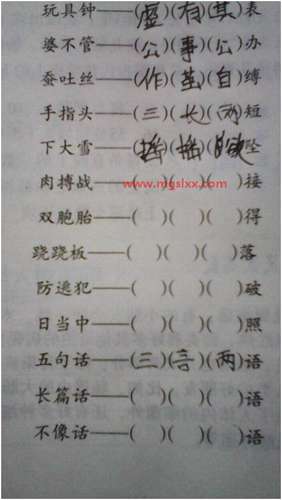 玩具钟——(虚)(有)(其)表
婆不管——(公)(事)(公)办
蚕吐丝——(作)(茧)(自)缚
手指头——(三)(长)(两)短
下大雪——(摇)(摇)(欲)坠
肉搏战——( )( )( )接
www.mgslxx.com
双胞胎——( )( )( )得
跷跷板——( )( )( )落
防逃犯——( )( )( )破
日当中——( )( )( )照
五句话——(三)(言)(两)语
长篇话——( )( )( )语
不像话——( )( )( )语